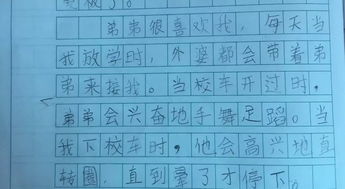 极了。
弟弟很喜欢我，每天当
我放学时，外婆都会带着弟
弟来接我。当校车开过时，
弟弟会兴奋地手舞足蹈。当
我下校车时，他会高兴地直
转圈，直到晕了才停下。